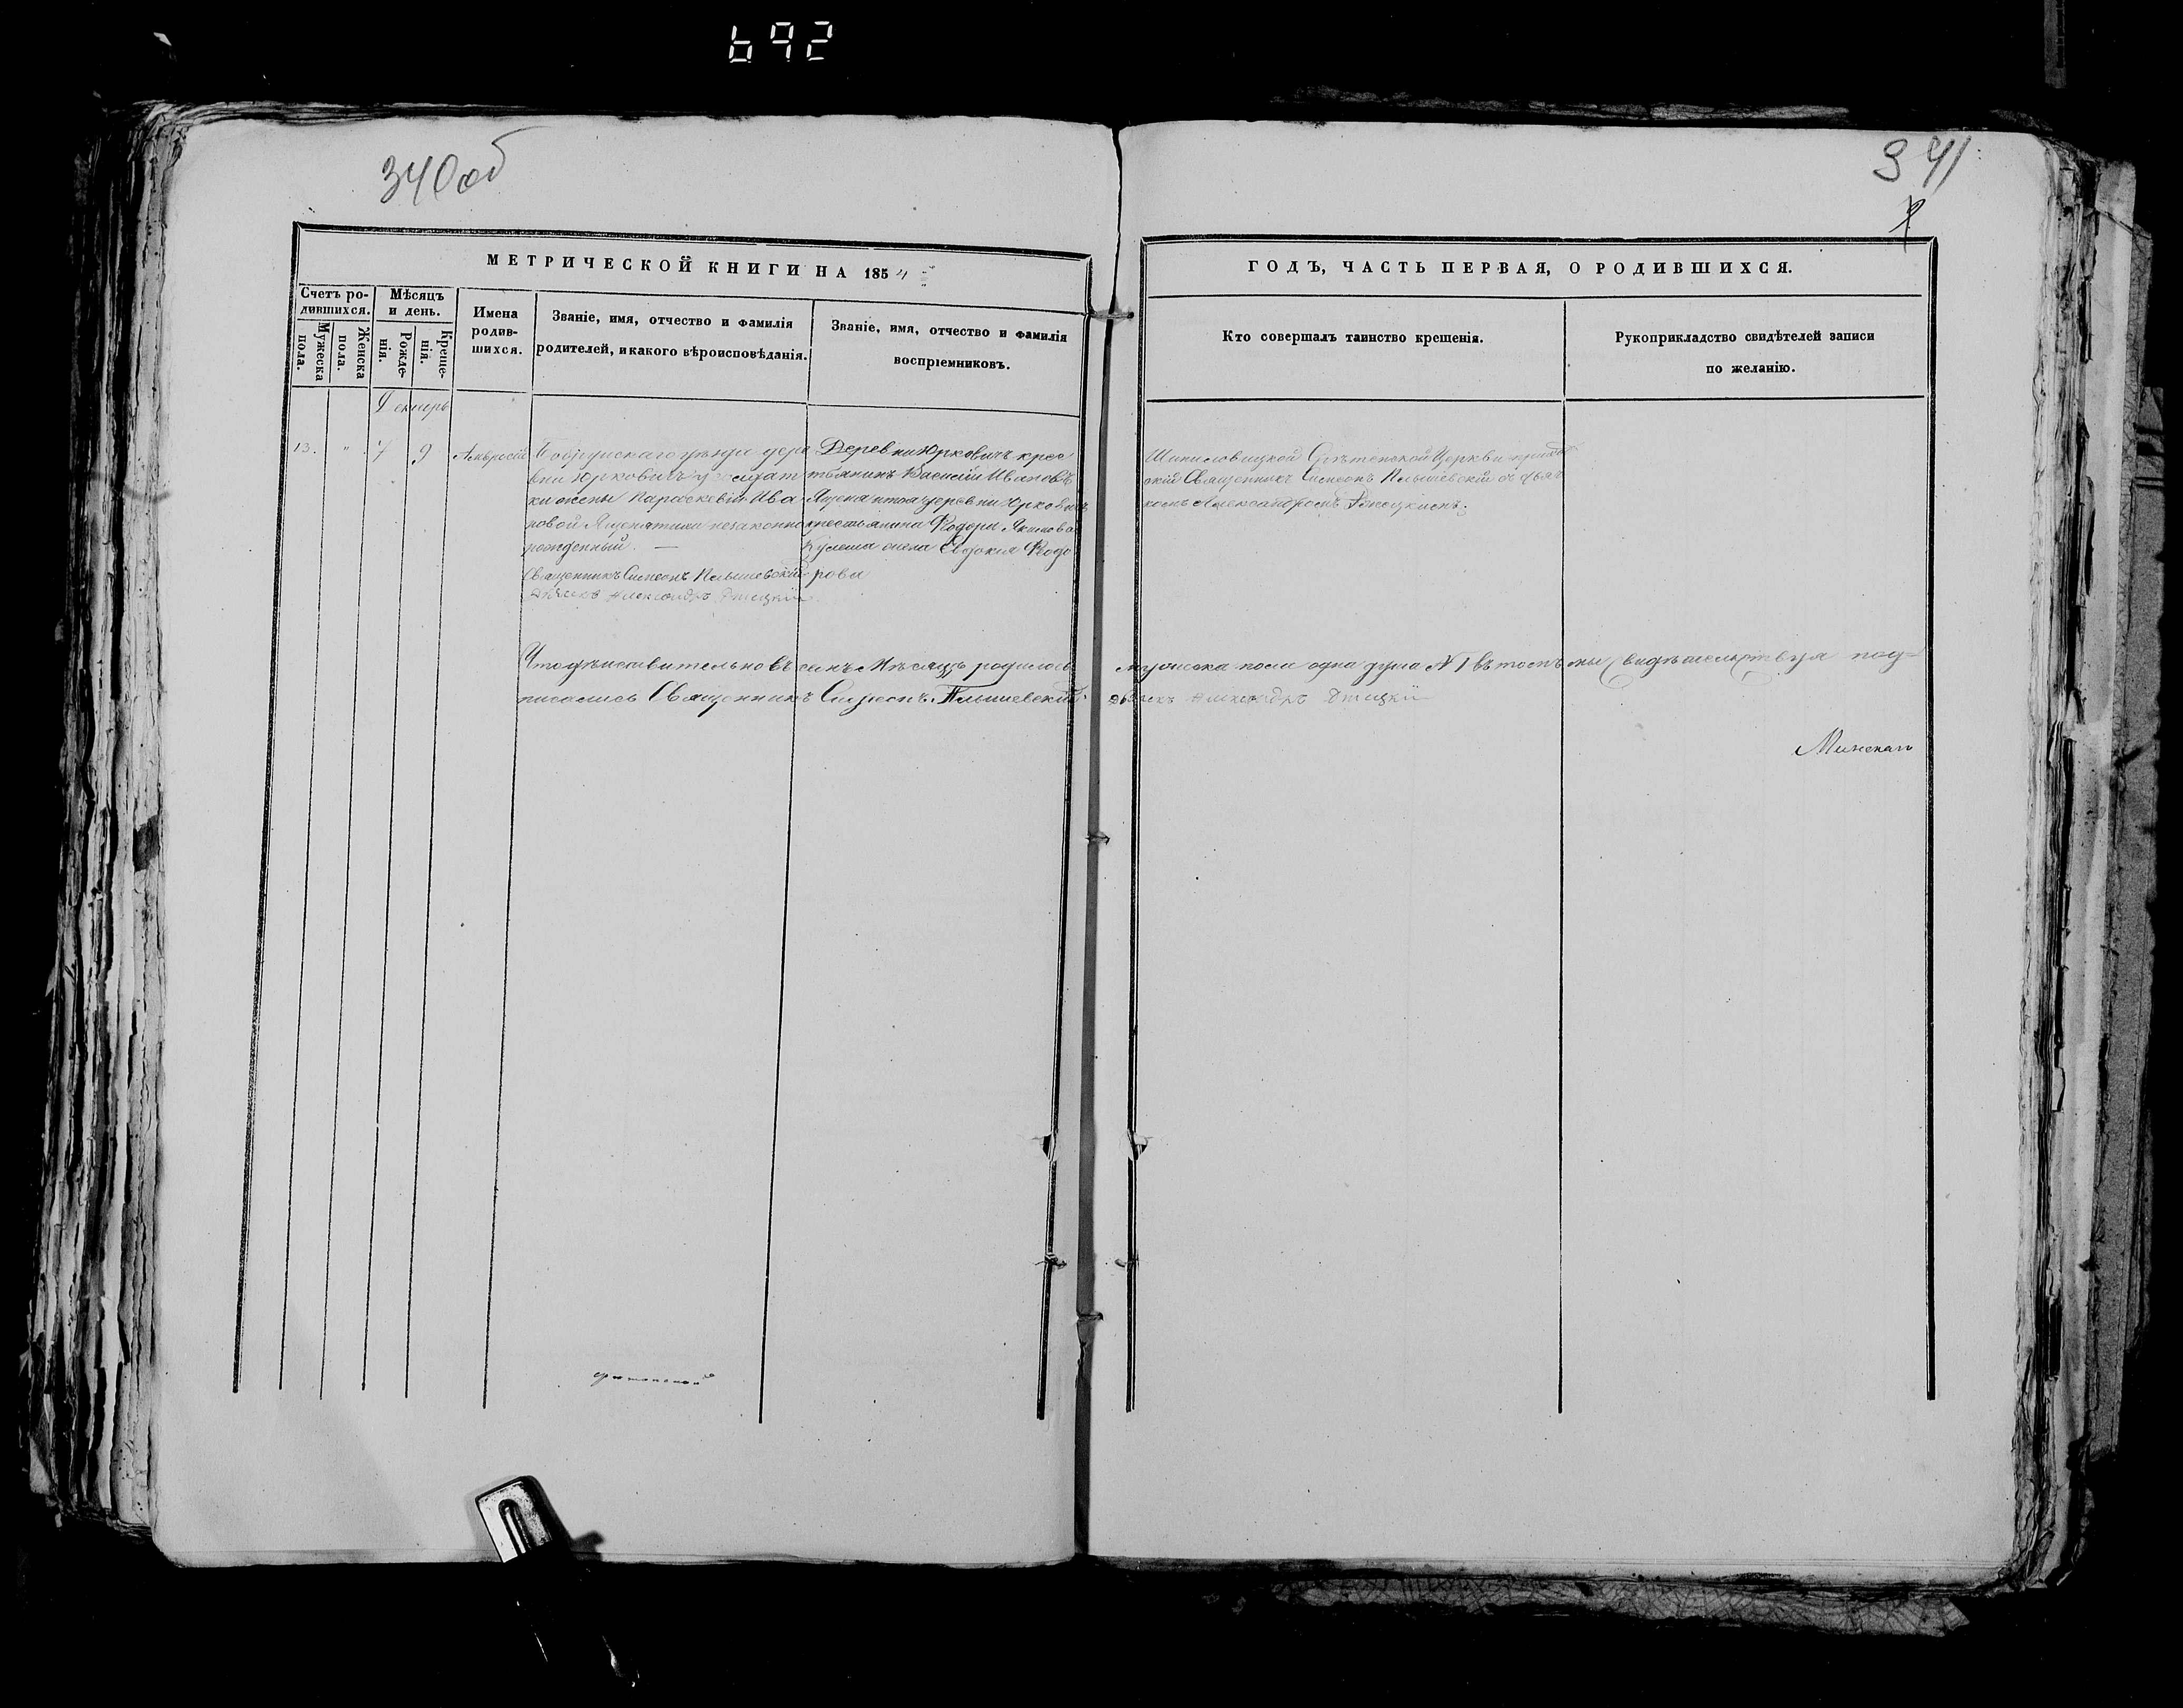 692
340об
341
МЕТРИЧЕСКОЙ КНИГИ НА 1854
ГОДЪ, ЧАСТЬ ПЕРВАЯ, О РОДИВШИХСЯ.
Счетъ ро-
дившихся.
Мужеска
пола.
Женска
пола.
Мѣсяцъ
и день.
Рожде-
нія.
Креще-
нія.
Имена
родив-
шихся.
Званіе, имя, отчество и фамилія
родителей, и какого вѣроисповѣданія.
Званіе, имя, отчество и фамилія
воспріемниковъ.
Кто совершалъ таинство крещенія.
Рукоприкладство свидѣтелей записи
по желанію.
Декабрь
13. " 7 9 Амвросій
Бобруйскаго уѣзда дере
вни Юрковичъ солдат
ки жены Параскевіи Ива
новой незаконно
рожденный. —
Священникъ Симеонъ
Дьячокъ Александръ
Деревни Юрковичъ крес
тьянинъ Василій Ивановъ
деревни Юрковичъ
крестьянина Ѳодора Якимова
Кулеша жена Евдокія Ѳодо
рова
Срѣтенской Церкви приход
скій Священникъ Симеонъ съ дьяч
комъ Александромъ
Что дѣйствительно въ семъ Мѣсяцѣ родилось мужеска пола одна душа № 1 въ томъ мы свидѣтельствуя под=
писались Священникъ Симеонъ
Дьячокъ Александръ
Минскаго